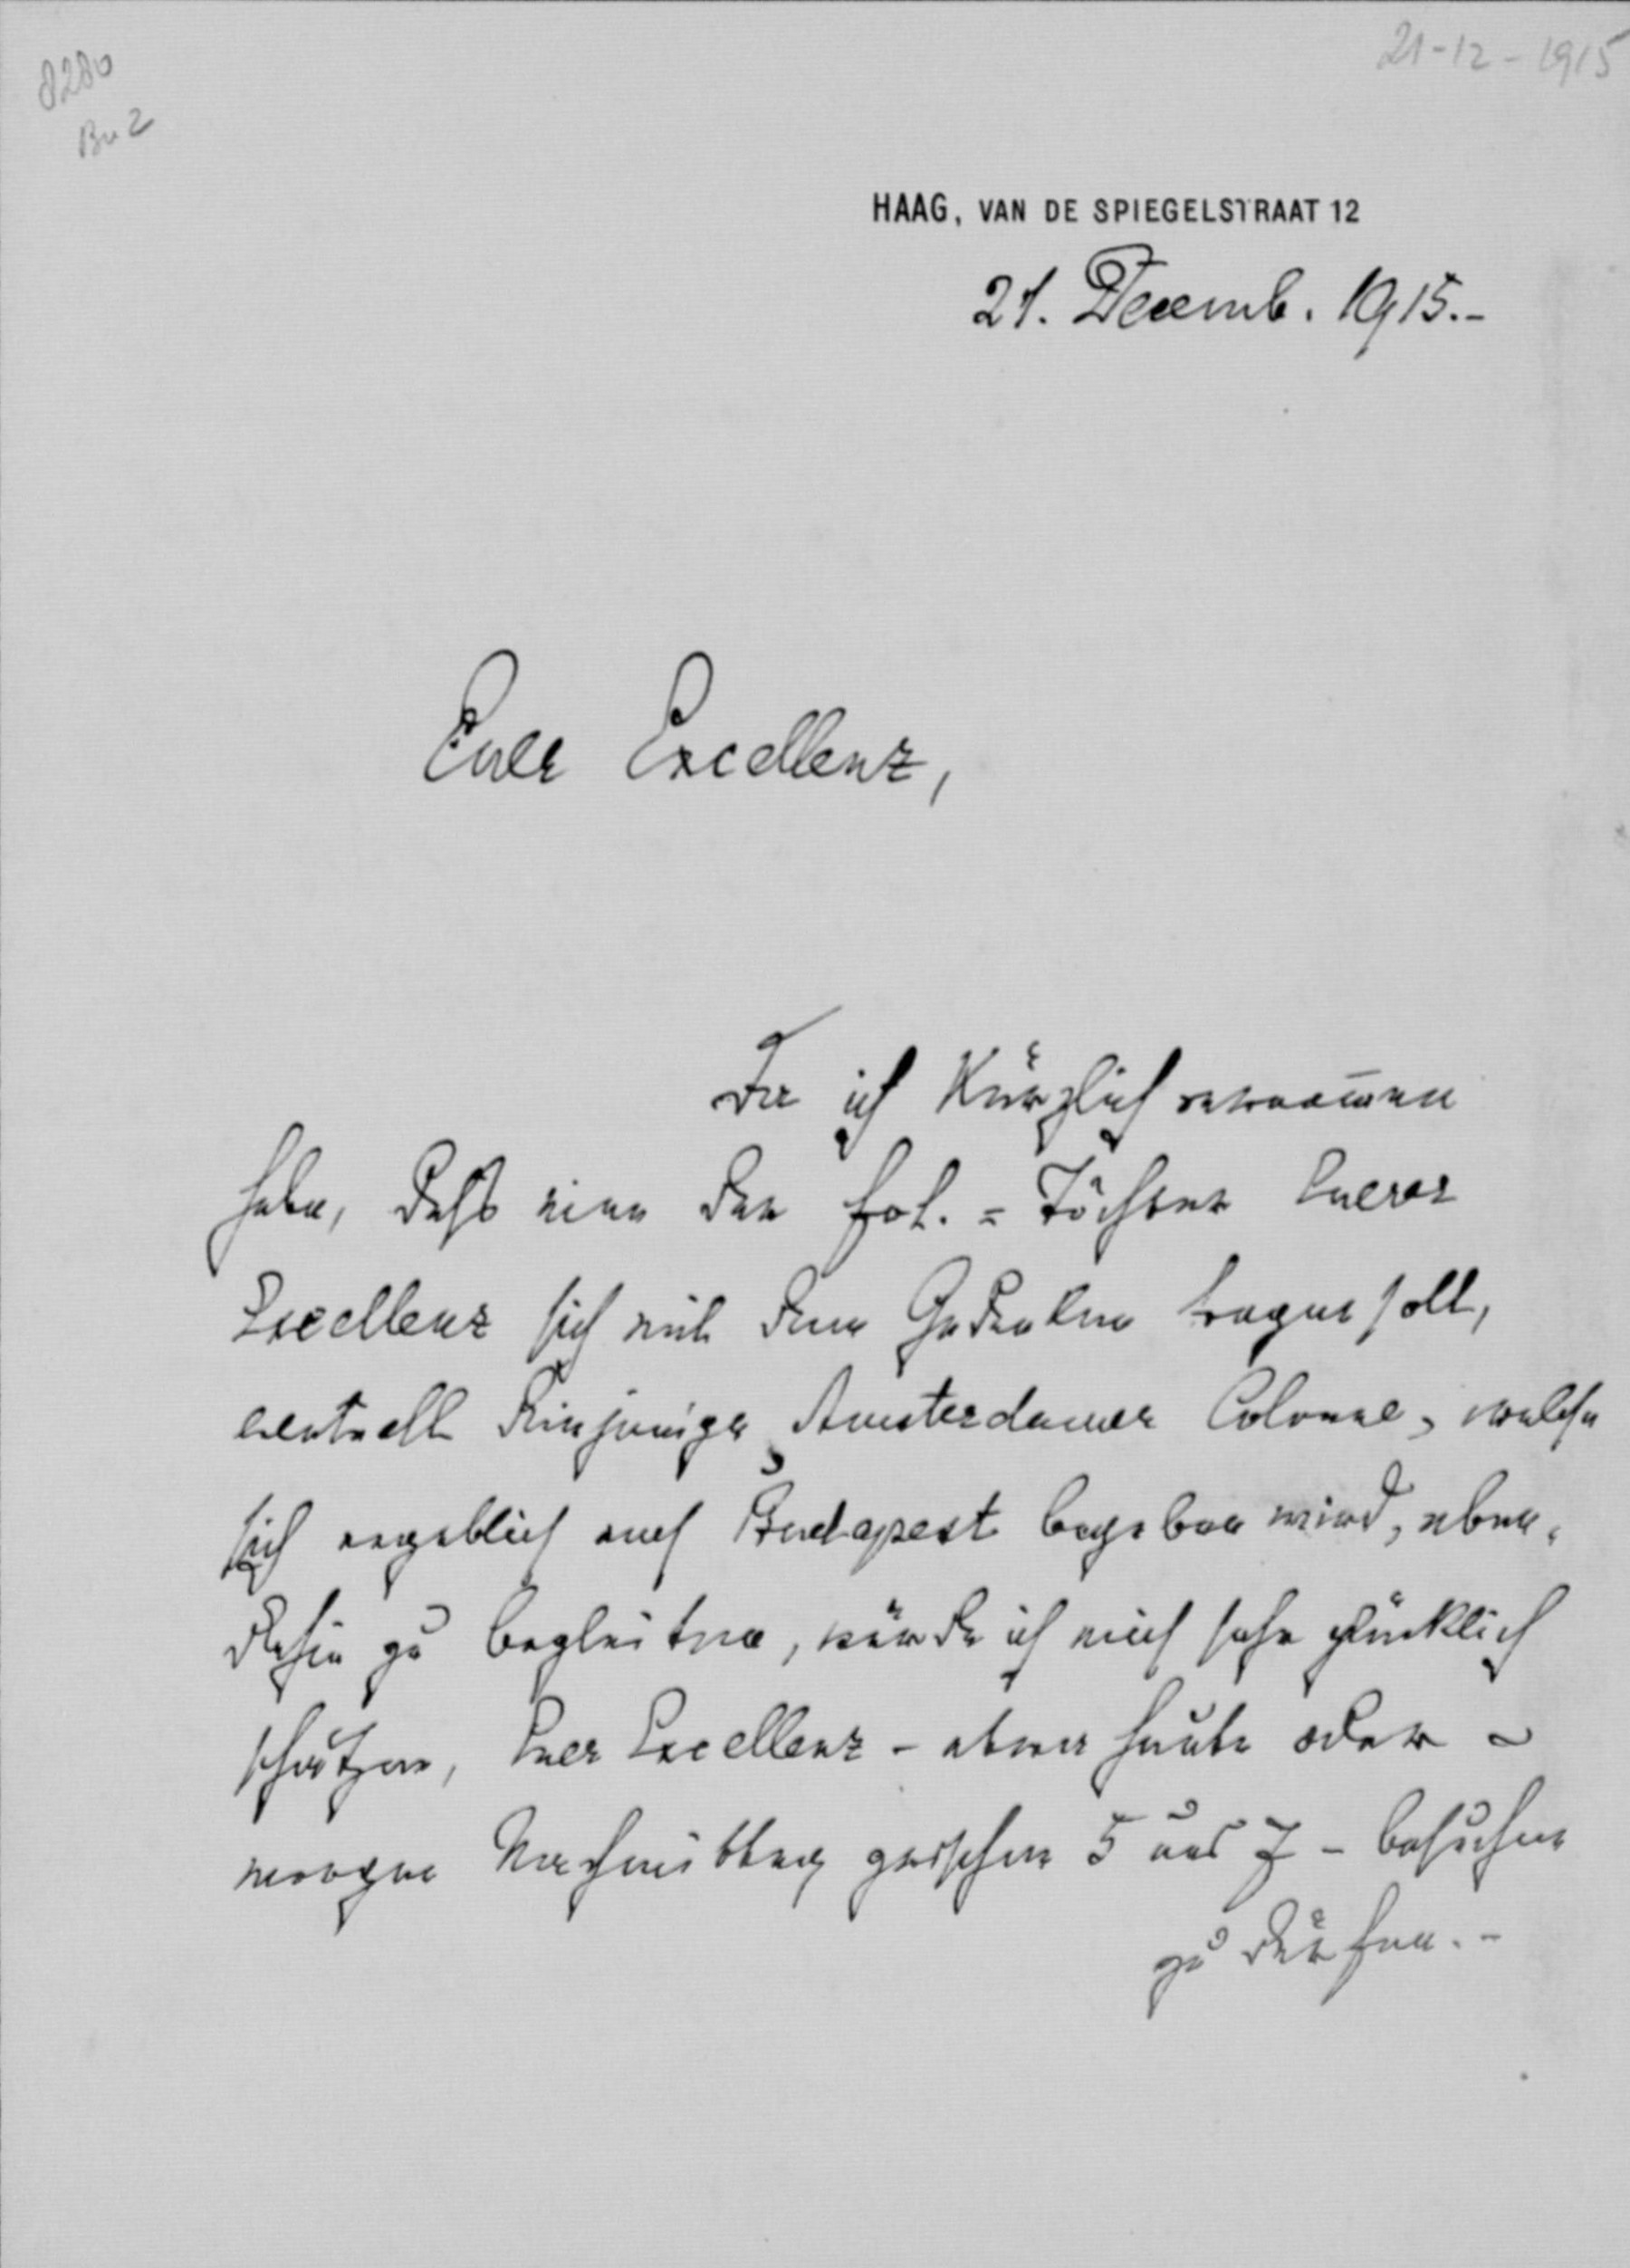 21-12-1915
8280
Bu 2
HAAG, VAN DE SPIEGELSTRAAT 12
21. Decemb. 1915.-
Euer Excellenz,
Da ich kürzlich vernom̅en
habe, daß eine der frl.=Töchter Euerer
Excellenz sich mit dem Gedanken tragen soll,
eventuell diejenige Amsterdamer Colonne, welche
sich angeblich nach Budapest begeben wird, eben-
dahin zu begleiten, würde ich mich sehr glücklich
schätzen, Euer Excellenz - etwa heute oder -
morgen Nachmittag zwischen 5 und 7 - besuchen
zu dürfen.-